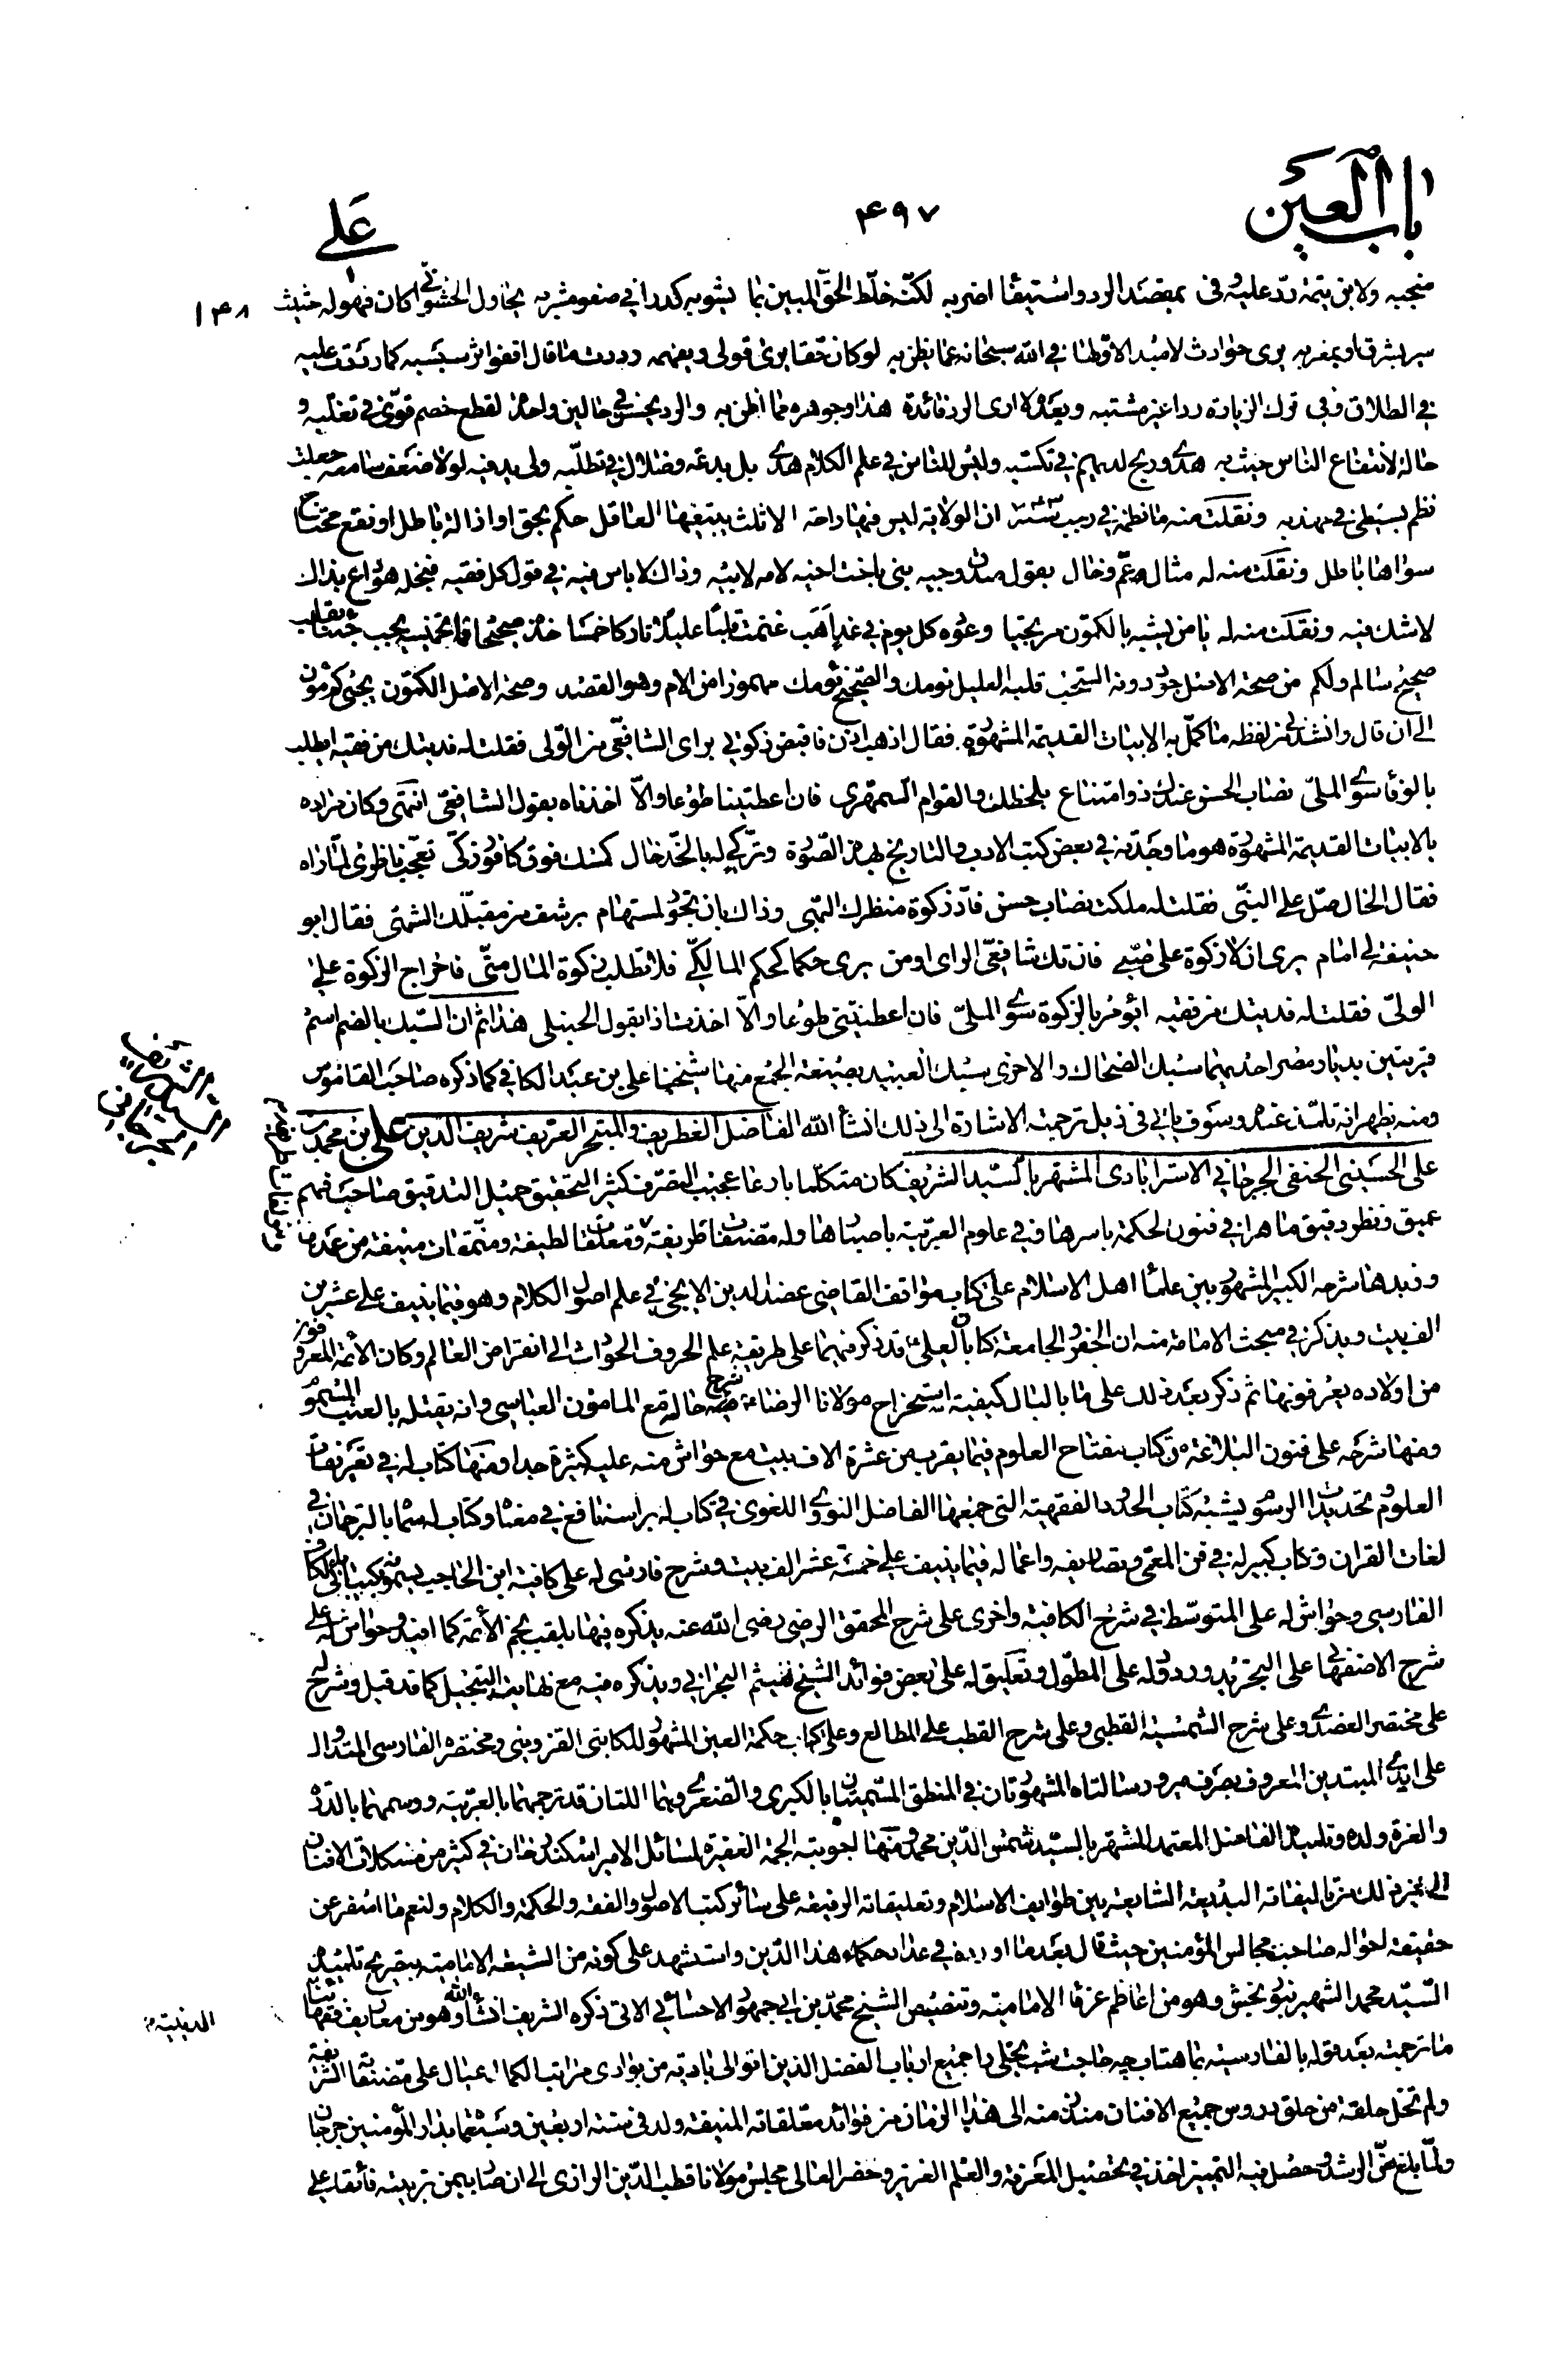 باب العين
۴۹۷
علي
۱۴۸
منجبه ولابن تيمة ردّ عليه وفى بمقصد الرد واستيفاء اضربه لكنّه خلّط الحقّ المبين بما يشوبه كدرا في صفو مشربه يحاول الحشو انّى كان فهو له حثيث
سير بشرق او بمغربه يرى حوادث لا مبدء لاوّلها في الله سبحانه عمّا يظن به لو كان حيّا يرى قولى ويفهمه رددت ما قال اقفو اثر سبسبه كما رددت عليه
في الطلاق وفي ترك الزيارة ردا غير مشتبه وبعده لا ارى للرد فائدة هذا وجوهره مما اظن به والرد يحسن في حالين واحدة لقطع خصم قوىّ في تغلّبه و
حالة لانتفاع الناس حيث به هدى وربح لديهم في تكسّبه وليس للناس في علم الكلام هدى بل بدعة وضلال في تطلّبه ولى يد فيه لولا ضعف سامعه جعلت
نظم بسيطى في مهذبه ونقلت منه ما نظمه في رجب سنة ان الولاية ليس فيها راحة الا ثلث يبتغيها العاقل حكم بحق او ازالة باطل او نفع محتاج
سواها باطل ونقلت منه له مثال عمّ وخال بقول صدق وجيه بنى باخت اخيه لامه لابيه وذاك لا باس فيه في قول كل فقيه فيجده هو اع بذاك
لا شك فيه ونقلت منه له يا من يشبه بالكمّون مرتجيا وعوه كل يوم في غد اهب
صحيح سالم ولكم من صحة الاصل جود دونه السحب قلبه العليل نومك والصحيح ثومك مهموزا من الام وهو القصد وصحة الاصل الكمّون يجىء كم مؤن
الى ان قال وانشدنى من لفظه ما كمّل به الابيات القديمة المشهورة فقال اذهب اذن فاقبض زكوتي براى الشافعىّ من الولى فقلت له فديتك من فقيه ايطلب
بالوفاء سوى الملىّ نصاب الحسن عندك ذو امتناع بلحظك والقوام السمهرى فان اعطيتنا طوعا والّا اخذناه بقول الشافعىّ انتهى وكان مراده
بالابيات القديمة المشهورة هو ما وجدته في بعض كتب الادب والتاريخ بهذه الصورة وتركي له بالخدّ خال كمسك فوق كافور زكىّ تعجّب ناظرى لمّا راه
فقال الخال صلّ على النبىّ فقلت له ملكت نصاب حسن فادّ زكوة منظرك البهى وذاك بان تجود لمستهام برشف من مقبّلك الشهىّ فقال ابو
حنيفة لى امام يرى ان لا زكوة على صبىّ فان تك شافعىّ الراى او من يرى حكما كحكم المالكىّ فلا تطلب زكوة المال منّى فاخراج الزكوة على
الولىّ فقلت له فديتك من فقيه ايؤمر بالزكوة سوى الملىّ فان اعطيتنى طوعا والّا اخذت اذا بقول الحنبلى هذا ثم ان السّبك بالضم اسم
قريتين بديار مصر احديهما سبك الضحاك والاخرى سبك العبيد بصيغة الجمع منها شيخنا على بن عبد الكافي كما ذكره صاحب القاموس
ومنه يظهر انه تلمّذ عنده وسوف ياتي في ذيل ترجمته الاشارة الى ذلك انشاء الله الفاضل الغطريف والمتبحر العريف شريف الدين علي بن محمد بن
السيد الشريف الجرجاني
على الحسينى الحنفى الجرجاني الاسترابادى المشتهر بالسّيد الشريف كان متكلما بارعا عجيب التصرّف كثير التحقيق جميل التدقيق صاحب فهم
عميق ونظر دقيق ماهرا في فنون الحكمة باسرها وفي علوم العربيّة باصبارها وله مصنفات ظريفة ومعلقات لطيفة ومنمّقات منيفة من عمدها
وزبدها شرحه الكبير المشهور بين علماء اهل الاسلام على كتاب مواقف القاضى عضد الدين الايجى في علم اصول الكلام وهو فيما ينيف على عشرين
الف بيت ويذكر في مبحث الامامة منه ان الجفر والجامعة كتابان لعلى ع قد ذكر فيهما على طريقة علم الحروف الحوادث الى انقراض العالم وكان الأئمة المعروفون
من اولاده يعرفونها ثم ذكر بعد ذلك على ما بالبال كيفية استخراج مولانا الرضا ع منه شرح حاله مع المامون العباسى وانه يقتله بالعنب المسموم
ومنها شرحه على فنون البلاغة من كتاب مفتاح العلوم فيما يقرب من عشرة الاف بيت مع حواش منه عليه كثيرة جدا ومنها كتاب له في تعريفات
العلوم وتحديدات الرسوم يشبه كتاب الحدود الفقهية التى جمعها الفاضل النووى اللغوى في كتاب له براسه نافع في معناه وكتاب له سماه بالترجمان في
لغات القران وكتاب كبير له في فن المعمّى وتصاريفه واعماله فيما ينيف على خمسة عشر الف بيت وشرح فارسى له على كافية ابن الحاجب
الفارسى وحواش له على المتوسّط في شرح الكافية واخرى على شرح المحقق الرضى رضى الله عنه يذكره فيها بلقب نجم الأئمة كما افيد وحواش له على
شرح الاصفهانى على التجريد وردود له على المطوّل وتعليق له على بعض فوائد الشيخ ميثم البحرانى ويذكره فيه مع نهاية التبجيل كما قد قيل وشرح له
على مختصر العضدى وعلى شرح الشمسية القطبى وعلى شرح القطب على المطالع وعلى كتاب حكمة العين المشهور للكاتبى القزوينى ومختصره الفارسى المتداول
على ايدى المبتدين المعروف بصرف مير ورسالتاه المشهورتان في المنطق المسمّيتان بالكبرى والصغرى وهما اللتان قد ترجمهما بالعربيّة ووسمهما بالدرّة
والغرة ولده وتلميذه الفاضل المعتمد المشتهر بالسيّد شمس الدّين محمد ومنها اجوبته الجمة الغفيرة لمسائل الامير اسكندر خان في كثير من مشكلات الافنان
الى غير ذلك من تاليفاته البديعة الشايعة بين طوايف الاسلام وتعليقاته الرفيعة على سائر كتب الاصول والفقه والحكمة والكلام ولنعم ما اسفر عن
حقيقة احواله صاحب مجالس المؤمنين حيث قال بعد ما اورده في عداد حكماء هذا الدّين واستشهد على كونه من الشيعة الامامية بتصريح تلميذه
السّيد محمد الشهير بنوربخش وهو من اعاظم عرفاء الامامية وتنصيص الشيخ محمد بن ابى جمهور الاحسائى الاتى ذكره الشريف انشاء الله وهو من معاريف فقهائنا
ما ترجمته بعد قوله بالفارسية بماهتاب چه حاجت شب تجلى را جميع ارباب الفضل الذين اتوا الى بادية من بوادى مراتب الكمال عيال على مصنفاته الشريفة
ولم تخل حلقة من حلق دروس جميع الافنان منذ زمنه الى هذا الزمان من فوائد معلقاته المنيفة ولد في سنة اربعين وسبعمائة بدار المؤمنين جرجان
ولمّا بلغ حدّ الرشد وحصل فيه التميز اخذ في تحصيل المعرفة والعلم الغزير وحضر العالى مجلس مولانا قطب الدّين الرازى الى ان صار بيمن تربيته فائقا على